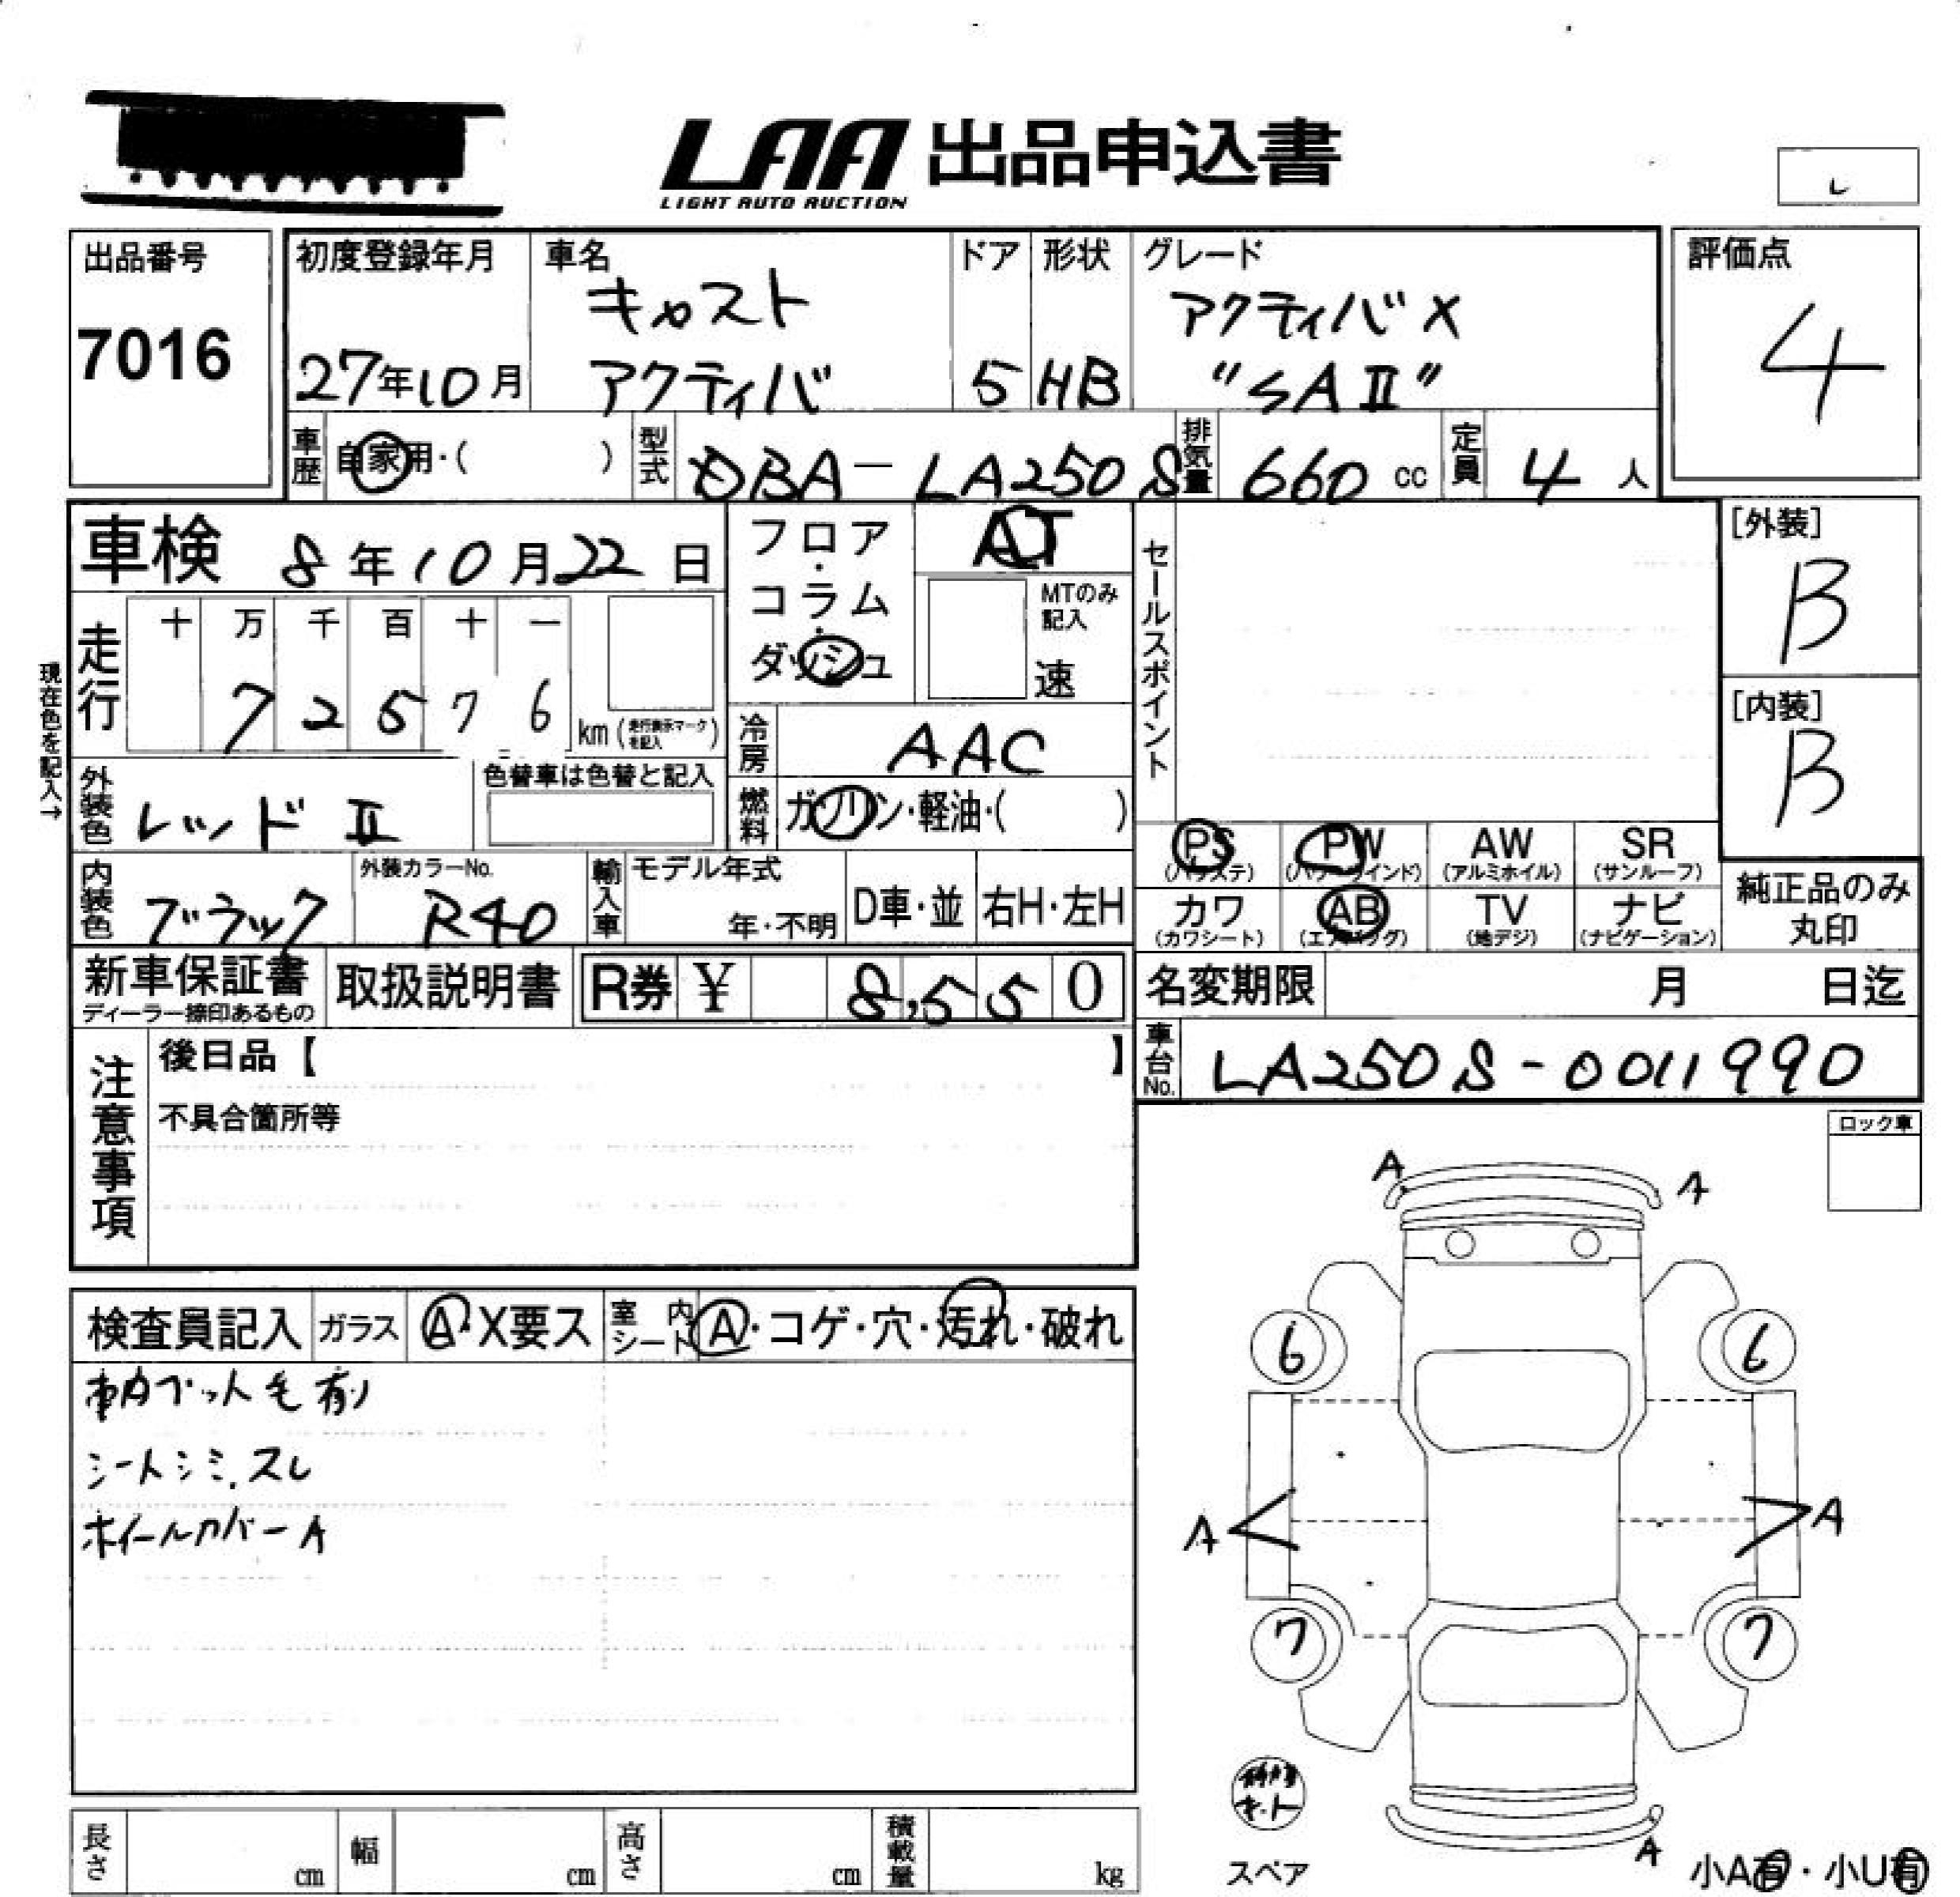 LAA 出品申込書
LIGHT AUTO AUCTION
出品番号
7016
初度登録年月
27年10月
車名
キャスト
アクティバ
ドア
5
形状
HB
グレード
アクティバX
"SAⅡ"
評価点
4
車歴
自家用・( )
型式
DBA-LA250S
排気量
660 cc
定員
4 人
車検 8年10月22日
フロア・
コラム・
ダッシュ
AT
MTのみ
記入
速
セールスポイント
[外装]
B
[内装]
B
現在色を記入→
走行
十 万 千 百 十 一
7 2 5 7 6
km (走行表示マークを記入)
冷房
AAC
外装色
レッドⅡ
色替車は色替と記入
燃料
ガソリン・軽油・( )
PS
(パワステ)
PW
(パワーウインド)
AW
(アルミホイル)
SR
(サンルーフ)
カワ
(カワシート)
AB
(エアバッグ)
TV
(地デジ)
ナビ
(ナビゲーション)
純正品のみ
丸印
内装色
ブラック
外装カラーNo.
R40
輸入車
モデル年式
年・不明
D車・並
右H・左H
新車保証書
ディーラー捺印あるもの
取扱説明書
R券 ¥ 8,550
名変期限 月 日迄
車台No.
LA250S-0011990
注意事項
後日品【 】
不具合箇所等
ロック車
検査員記入
ガラス
A・X要ス
室内
シート
A・コゲ・穴・汚れ・破れ
車内ペット毛有り
シートシミ.スレ
ホイールカバーA
A
A
6
6
A
A
7
7
A
修理
キット
スペア
小A有・小U有
長さ
cm
幅
cm
高さ
cm
積載量
kg